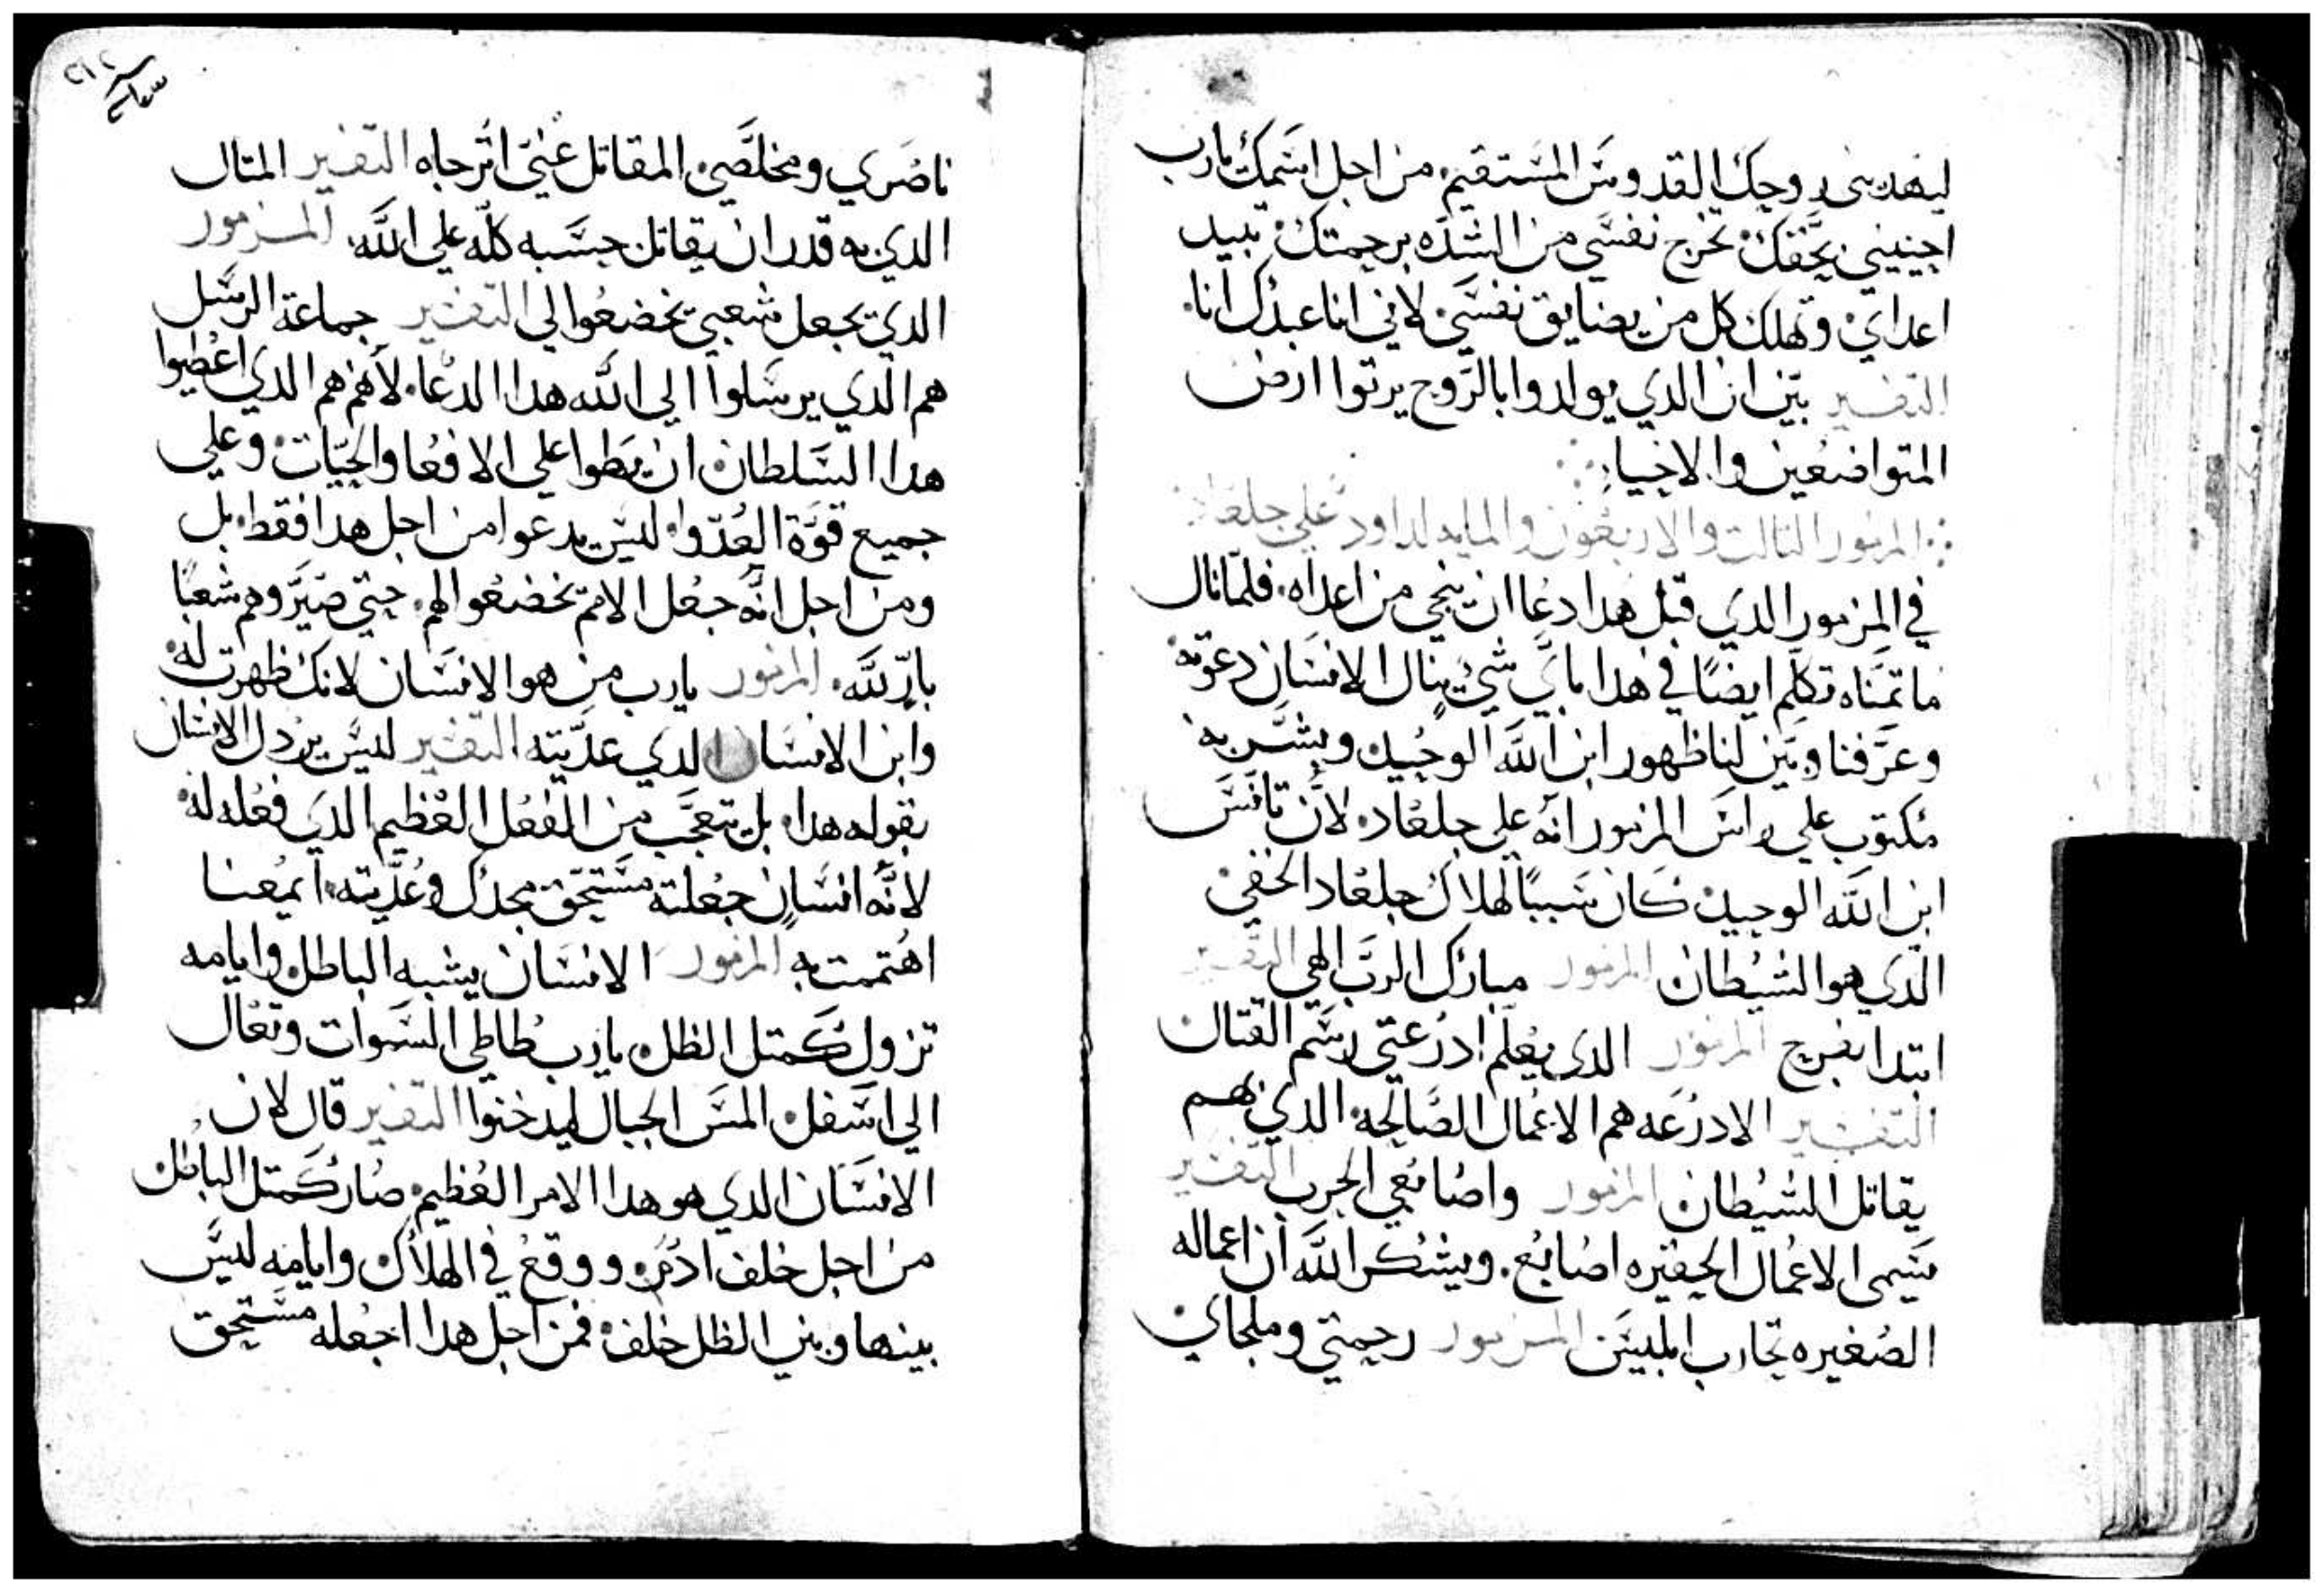 ليهديني روحك القدوس المستقيم. من اجل اسمك يارب
احييني بحقك تخرج نفسي من الشده برحمتك تبيد
اعداي وتهلك كل من يضايق نفسي لاني انا عبدك انا.
التفسير بيّن ان الدي يولدوا بالروح يرتوا ارض
المتواضعين والاحيا
المزمور التالت والاربعون والمايه لداود علي جلعاد
في المزمور الدي قبل هدا دعا ان ينجي من اعداه. فلما نال
ما تمنّاه تكلم ايضًا في هدا باي شي ينال الانسان دعوته
وعرّفنا وبيّن لنا ظهور ابن اللّه الوحيد ويشّر به
مكتوب علي راس المزمور انه علي جلعاد. لأن تانس
ابن اللّه الوحيد كان سببًا لهلاك جلعاد الخفي
الّدي هو الشيطان المزمور مبارك الرب الهي التفسير
ابتدا بفرح المزمور الدي يعلم ادرعتي رسم القتال
التفسير الادرعه هم الاعمال الصّالحه الدي بهم
يقاتل الشيطان المزمور واصابعي الحرب التفسير
يسمى الاعمال الحقيره اصابع. ويشكر اللّه ان اعماله
الصغيره تحارب ابليس المزمور رحمتي وملجاي
ناصري ومخلّصي المقاتل عني اترجاه التفسير المتال
الدي به قدر ان يقاتل حسبه كلّه علي اللّه. المزمور
الدي يجعل شعبي يخضعوا لي التفسير جماعة الرسل
هم الّدي يرسلوا الي اللّه هدا الدعا. لأنهم هم الدي اعطيوا
هدا السلطان ان يطوا علي الافعا والحيّات وعلي
جميع قوّة العدّوا ليس يدعوا من اجل هدا فقط. بل
ومن اجل انّه جعل الامم يخضعوا لهم. حتي صيّروهم شعبًا
بارّ للّه. المزمور يارب من هو الانسان لانك ظهرت له
وابن الانسان الدي عدّيته التفسير ليس يردل الانسان
بقوله هدا. بل يتعجّب من الفعل العظيم الدي فعله له
لانّه انسان جعلته مستحق مجدك وعدّيته. ايمعنا
اهتممت به المزمور الانسان يشبه الباطل وايامه
تزول كمتل الظل يارب طاطي السموات وتعال
الي اسفل المس الجبال ليدخنوا التفسير قال لان
الانسان الدي هو هدا الامر العظيم. صار كمتل الباطل
من اجل خلف ادم. ووقع في الهلاك وايامه ليس
بينها وبين الظل خلف فمن اجل هدا اجعله مستحق